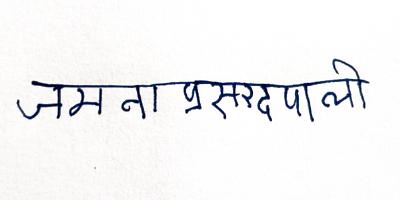 जमना प्रसाद पाली